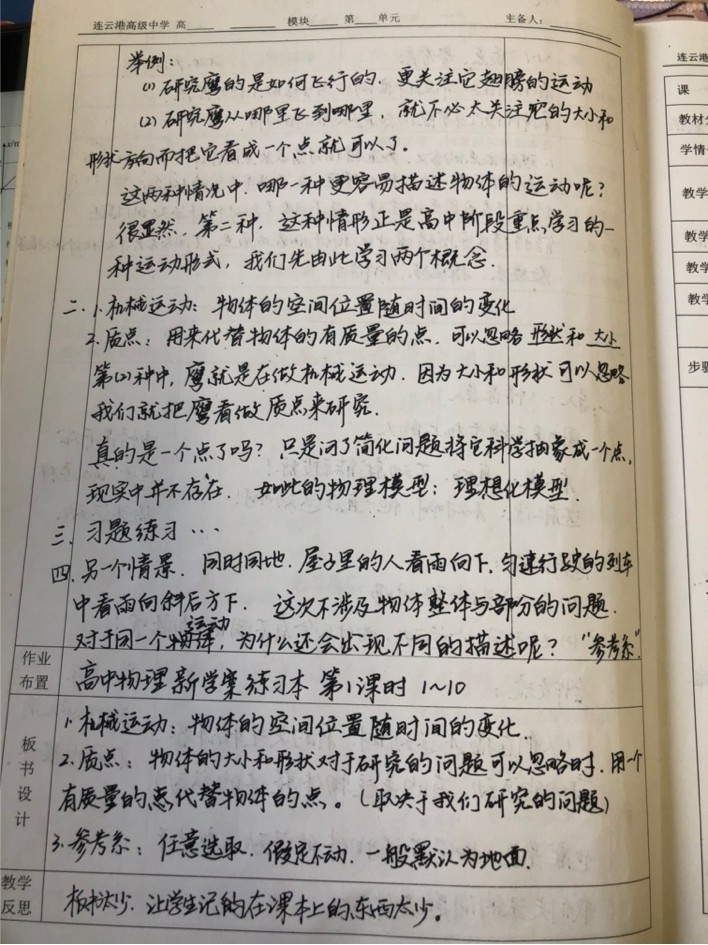 连云港高级中学 高____ ____ 模块____ 第____单元 主备人：____
举例：
(1) 研究鹰的是如何飞行的，更关注它翅膀的运动
(2) 研究鹰从哪里飞到哪里，就不必太关注鹰的大小和
形状方向而把它看成一个点就可以了。
这两种情况中，哪一种更容易描述物体的运动呢？
很显然，第二种，这种情形正是高中阶段重点学习的一
种运动形式，我们先由此学习两个概念．
二、1. 机械运动：物体的空间位置随时间的变化
2. 质点：用来代替物体的有质量的点．可以忽略 形状和 大小
第(2)种中，鹰就是在做机械运动．因为大小和形状可以忽略
我们就把鹰看做质点来研究．
真的是一个点了吗？只是问了简化问题将它科学抽象成一个点，
现实中并不存在．如此的物理模型：理想化模型．
三、习题练习…
四、另一个情景．同时同地．屋子里的人看雨向下．匀速行驶的列车
中看雨向斜后方下．这次不涉及物体整体与部分的问题．
对于同一个运动，为什么还会出现不同的描述呢？“参考系”
作业
布置
高中物理新学案练习本 第1课时 1～10
板
书
设
计
1. 机械运动：物体的空间位置随时间的变化．
2. 质点：物体的大小和形状对于研究的问题可以忽略时．用一个
有质量的点代替物体的点。（取决于我们研究的问题）
3. 参考系：任意选取．假定不动．一般默认为地面．
教学
反思
板书太少．让学生记的在课本上的东西太少。
连云港
课
教材分
学情
教学
教学
教学
教学
步骤
x/m